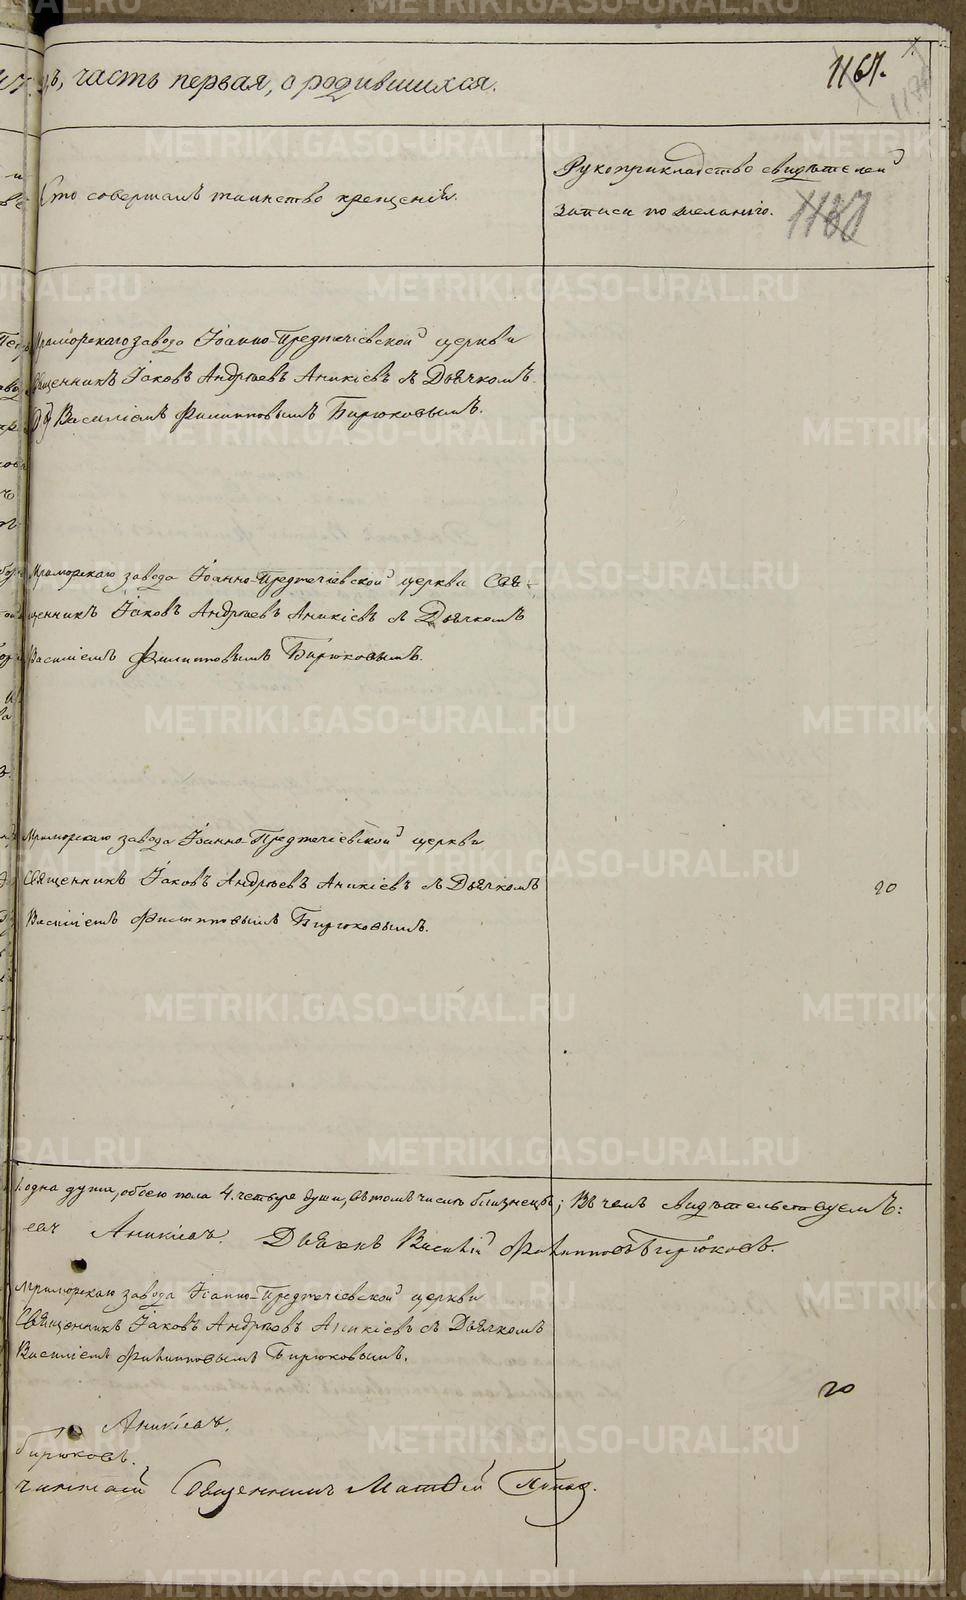 ъ, часть первая, о родившихся.
1167.
Кто совершалъ таинство крещенія.
Рукоприкладство свидѣтелей
записи по желанію.
1180
Мраморскаго завода Іоанно-Предтечіевской церкви
Священникъ Іаковъ Андреевъ Аникіевъ съ Дьячкомъ
Василіемъ Филипповымъ Бирюковымъ.
Мраморскаго завода Іоанно-Предтечіевской церкви Свя-
щенникъ Іаковъ Андреевъ Аникіевъ съ Дьячкомъ
Василіемъ Филипповымъ Бирюковымъ.
Мраморскаго завода Іоанно-Предтечіевской церкви
Священникъ Іаковъ Андреевъ Аникіевъ съ Дьячкомъ
Василіемъ Филипповымъ Бирюковымъ.
20
1. одна душа, обоего пола 4. четыре души, въ томъ числѣ близнецы; въ чемъ свидѣтельствуемъ:
Аникіевъ. Дьячекъ Василій Филипповъ Бирюковъ.
Мраморскаго завода Іоанно-Предтечіевской церкви
Священникъ Іаковъ Андреевъ Аникіевъ съ Дьячкомъ
Василіемъ Филипповымъ Бирюковымъ.
20
Аникіевъ.
Бирюковъ.
Священникъ Матѳій Попов.
METRIKI.GASO-URAL.RU